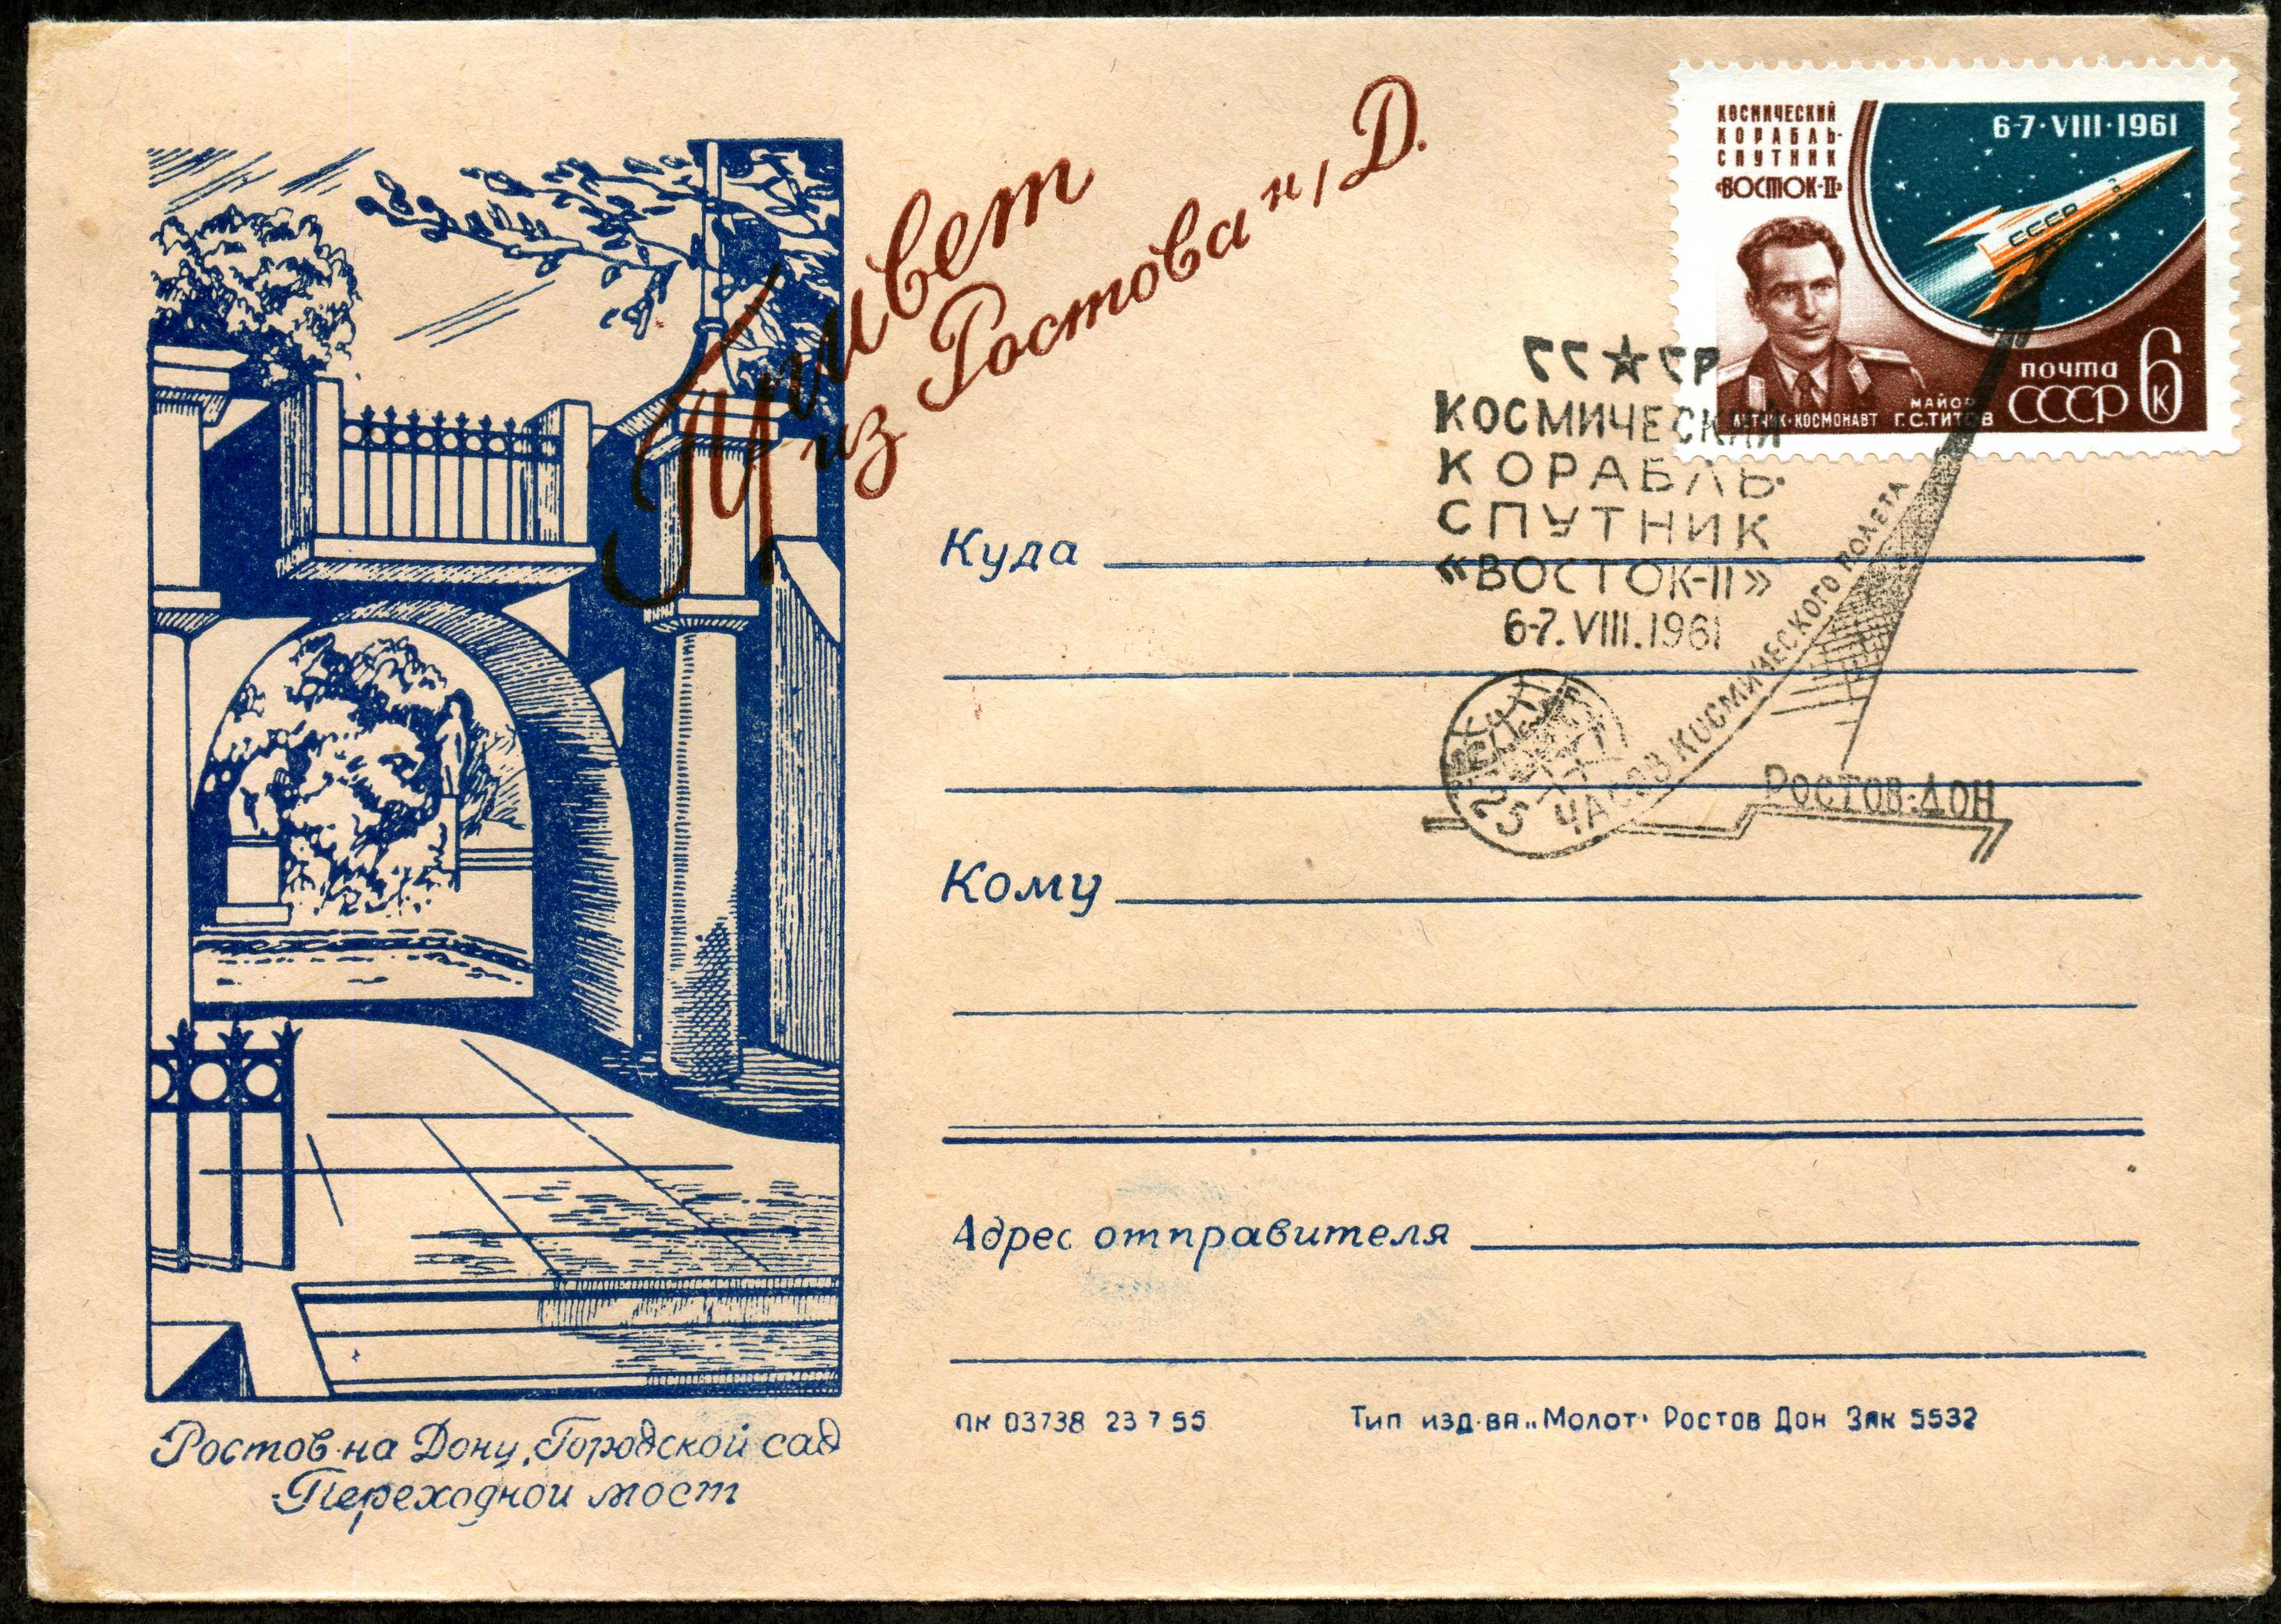 Привет
из Ростова н/Д.
КОСМИЧЕСКИЙ
КОРАБЛЬ-
СПУТНИК
«ВОСТОК-II»
6-7·VIII·1961
СССР
ЛЕТЧИК-КОСМОНАВТ МАЙОР Г.С.ТИТОВ
почта
СССР 6 К
СС★СР
КОСМИЧЕСКИЙ
КОРАБЛЬ-
СПУТНИК
«ВОСТОК-II»
6-7.VIII.1961
25 ЧАСОВ КОСМИЧЕСКОГО ПОЛЕТА
РОСТОВ-ДОН
Куда
Кому
Адрес отправителя
ПК 03738 23 7 55
Тип изд-ва „Молот" Ростов Дон Зак 5532
Ростов-на Дону, Городской сад
Переходной мост